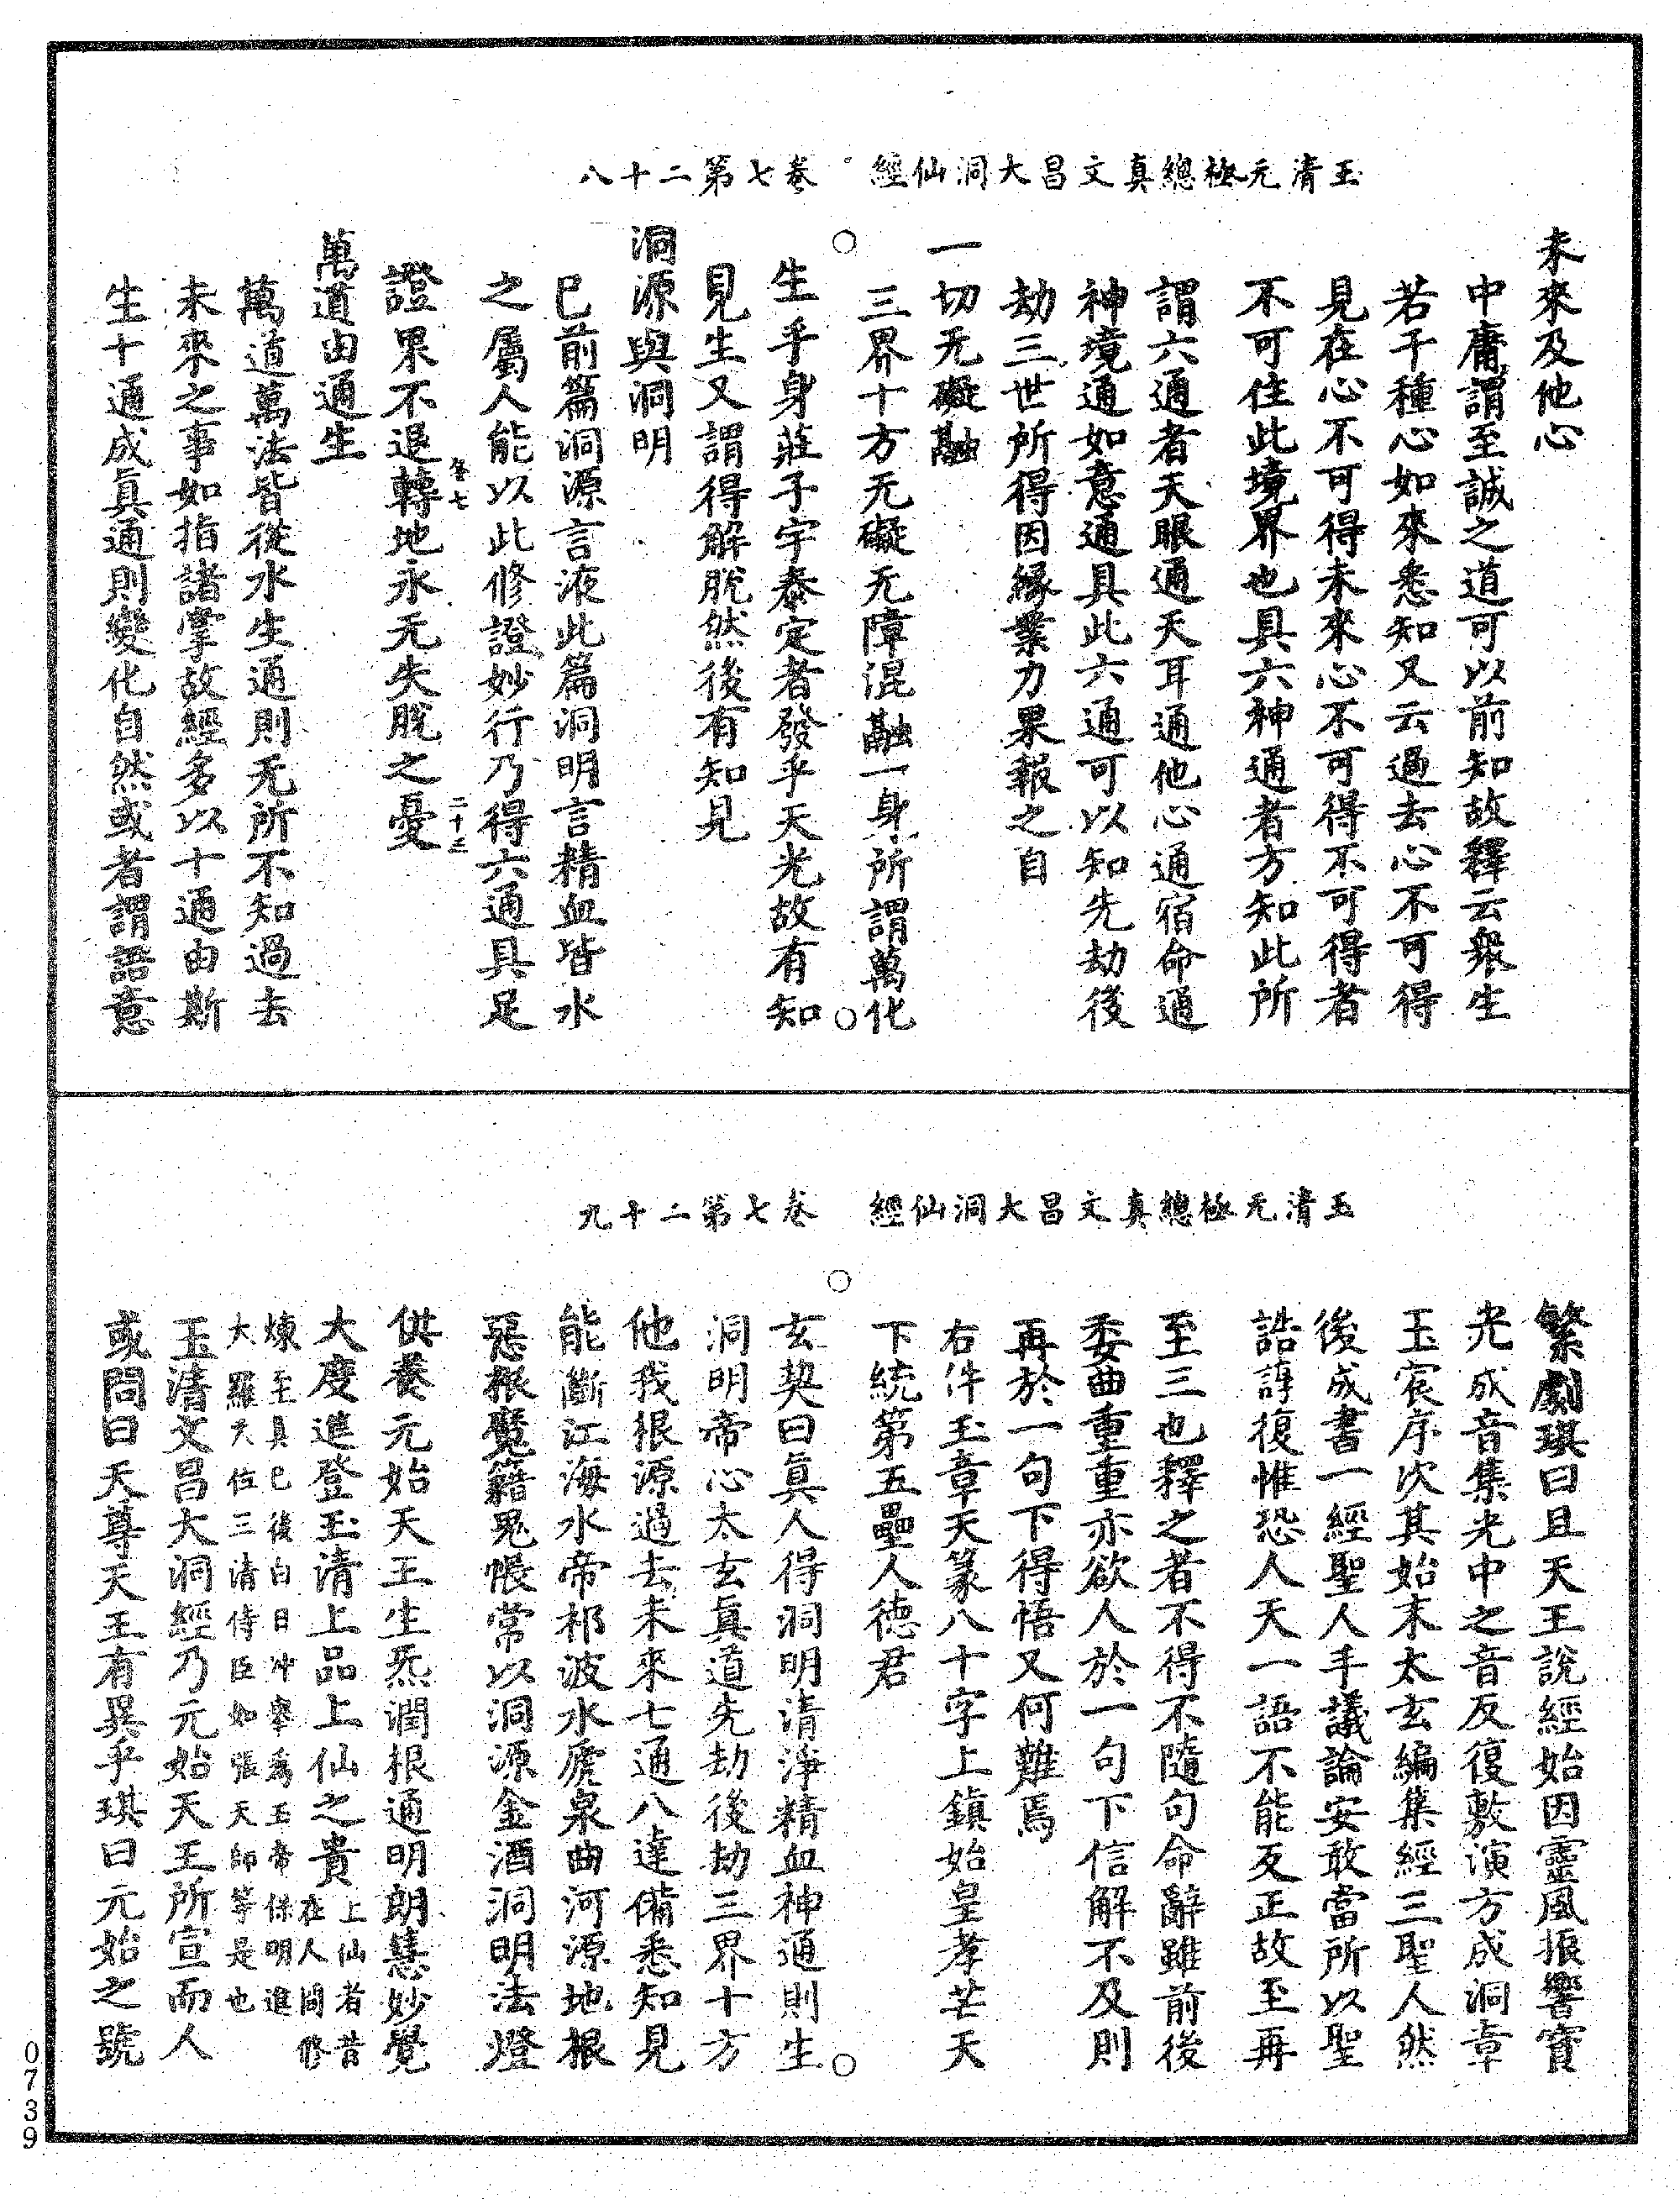 玉清无極總真文昌大洞仙經　卷七第二十八
未來及他心
中庸謂至誠之道可以前知故釋云衆生
若干種心如來悉知又云過去心不可得
見在心不可得未來心不可得不可得者
不可住此境界也具六神通者方知此所
謂六通者天眼通天耳通他心通宿命通
神境通如意通具此六通可以知先劫後
劫三世所得因緣業力果報之自
一切无礙融
三界十方无礙无障混融一身所謂萬化
生乎身莊子宇泰定者發乎天光故有知
見生又謂得解脫然後有知見
洞源與洞明
巳前篇洞源言液此篇洞明言精血皆水
之屬人能以此修證妙行乃得六通具足
卷七　二十三
證果不退轉地永无失脫之憂
萬道由通生
萬道萬法皆從水生通則无所不知過去
未來之事如指諸掌故經多以十通由斯
生十通成真通則變化自然或者謂語意
玉清无極總真文昌大洞仙經　卷七第二十九
繁劇琪曰且天王說經始因靈風振響寳
光成音集光中之音反復敷演方成洞章
玉宸序次其始末太玄編集經三聖人然
後成書一經聖人手議論安敢當所以聖
誥諄復惟恐人天一語不能反正故至再
至三也釋之者不得不隨句命辭雖前後
委曲重重亦欲人於一句下信解不及則
再於一句下得悟又何難焉
右件玉章天篆八十字上鎮始皇孝芒天
下統第五壘人德君
玄契曰真人得洞明清淨精血神通則生
洞明帝心太玄真道先劫後劫三界十方
他我根源過去未來七通八達備悉知見
能斷江海水帝祁波水厎泉曲河源地根
惡根魔籍鬼帳常以洞源金酒洞明法燈
供養元始天王生炁潤根通明朗慧妙覺
大度進登玉清上品上仙之貴上仙者昔在人間修
煉至真已後白日冲舉爲玉帝保明進
大羅天位三清侍臣如張天師等是也
玉清文昌大洞經乃元始天王所宣而人
或問曰天尊天王有異乎琪曰元始之號
0739